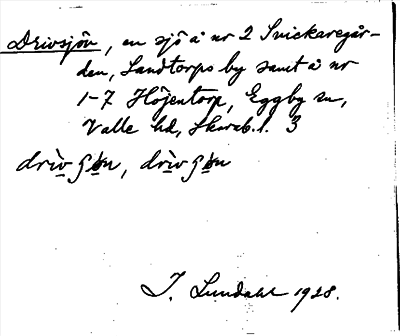 Drivsjön, en sjö å nr 2 Snickaregår-
den, Landtorps by samt å nr
1-7 Höjentorp, Eggby sn,
Valle hd, Skarab. l. 3
drìv
I. Lundahl 1928.